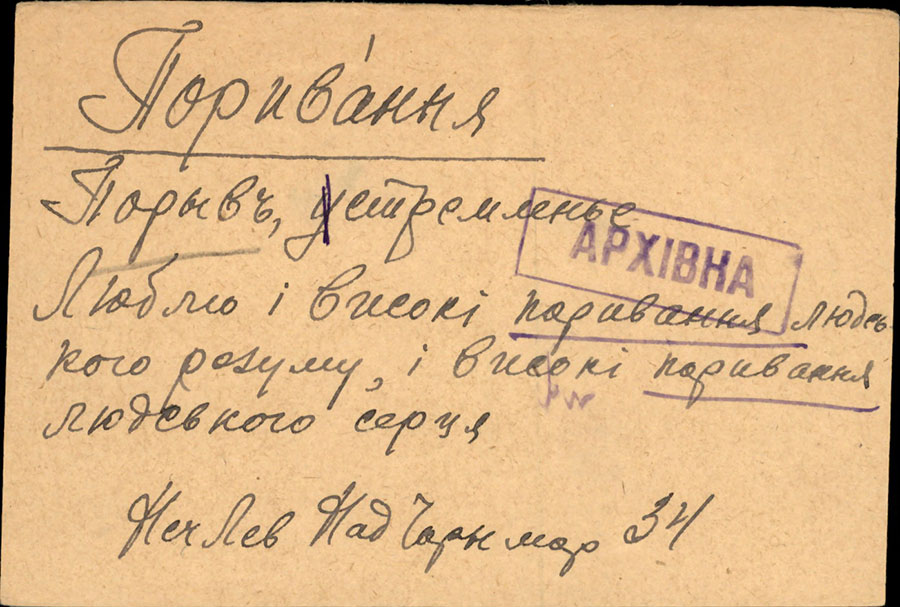 Порива́ння
Порывъ, устремленье
АРХІВНА
Люблю і високі поривання людсь-
кого розуму, і високі поривання
людського серця
Неч Лев Над Чорн мор 34